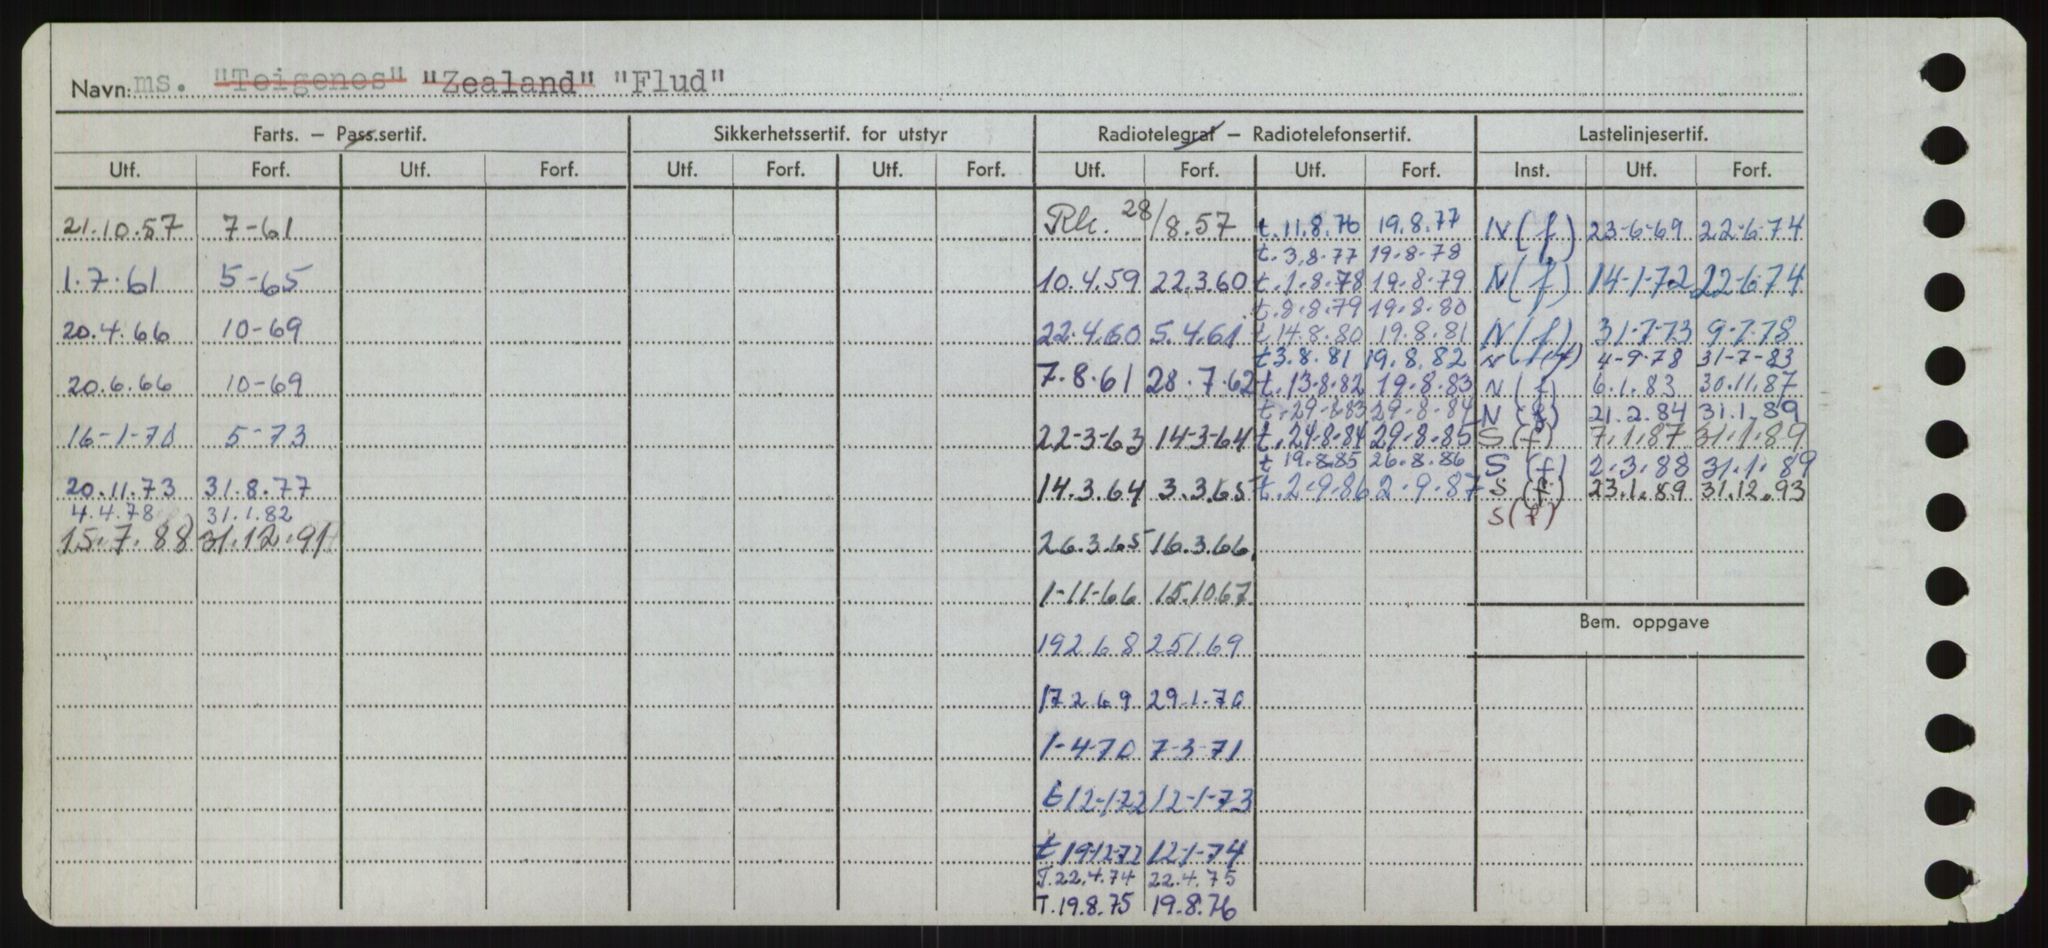 Navn: ms. "Teigenes" "Zealand" "Flud"
Farts. – Pass.sertif. Sikkerhetssertif. for utstyr Radiotelegraf – Radiotelefonsertif. Lastelinjesertif.
Utf. Forf. Utf. Forf. Utf. Forf. Utf. Forf. Utf. Forf. Utf. Forf. Inst. Utf. Forf.
21.10.57 7-61 Rk. 28/8.57 t. 11.8.76 19.8.77 N(f) 23-6-69 22-6-74
t. 3.8.77 19.8.78
1.7.61 5-65 10.4.59 22.3.60 t. 1.8.78 19.8.79 N(f) 14-1-72 22-6-74
t. 8.8.79 19.8.80
20.4.66 10-69 22.4.60 5.4.61 t. 14.8.80 19.8.81 N(f) 31-7-73 9-7-78
t. 3.8.81 19.8.82 N(f) 4-9-78 31-7-83
20.6.66 10-69 7.8.61 28.7.62 t. 13.8.82 19.8.83 N(f) 6.1.83 30.11.87
29.8.84 N(f) 21.2.84 31.1.89
16-1-70 5-73 22-3-63 14-3-64 t. 24.8.84 29.8.85 S(f) 7.1.87 31.1.89
t 19.8.85 26.8.86 S(f) 2.3.88 31.1.89
20.11.73 31.8.77 14.3.64 3.3.65 t. 2.9.86 2.9.87 S(f) 23.1.89 31.12.93
4.4.78 31.1.82 S(f)
15.7.88 31.12.91 26.3.65 16.3.66
1-11-66 15.10.67
19 2 68 25 1 69
17 2 69 29.1.70
Bem. oppgave
1-4-70 7-3-71
t 12-1-72 12-1-73
t 19-12-72 12-1-74
T. 22.4.74 22.4.75
T. 19.8.75 19.8.76